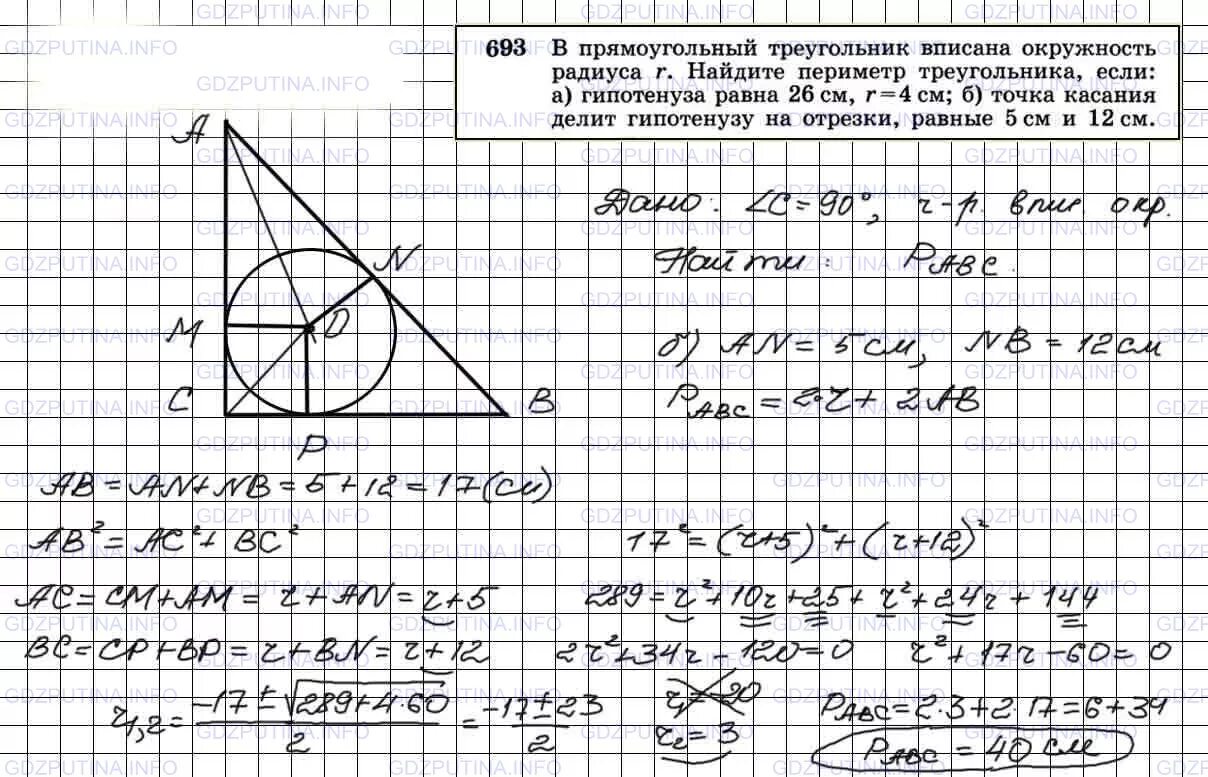 693 В прямоугольный треугольник вписана окружность
радиуса r. Найдите периметр треугольника, если:
а) гипотенуза равна 26 см, r=4 см; б) точка касания
делит гипотенузу на отрезки, равные 5 см и 12 см.
A
N
M
D
C
B
P
Дано: ∠C=90°, r-р. впис. окр.
Найти: P_ABC.
б) AN = 5 см, NB = 12 см
P_ABC = 2·r + 2AB
AB = AN+NB = 5+12 = 17 (см)
AB² = AC² + BC² 17² = (r+5)² + (r+12)²
AC = CM+AM = r+AN = r+5 289 = r²+10r+25+r²+24r+144
BC = CP+BP = r+BN = r+12 2r²+34r-120=0 r²+17r-60=0
r₁,₂ = (-17±√(289+4·60))/2 = (-17±23)/2 r₁=-20 P_ABC = 2·3+2·17=6+34
r₂=3 P_ABC = 40 см
GDZPUTINA.INFO